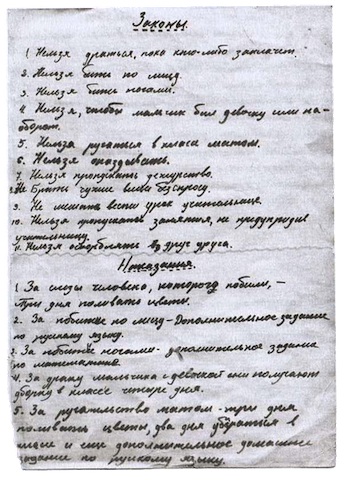 Законы.
1. Нельзя драться, пока кто-либо заплачет.
2. Нельзя бить по лицу.
3. Нельзя бить ногами.
4. Нельзя, чтобы мальчик бил девочку или на-
оборот.
5. Нельзя ругаться в классе матом.
6. Нельзя опаздывать.
7. Нельзя пропускать дежурство.
8. Не брать чужие вещи без спросу.
9. Не мешать вести урок учительнице.
10. Нельзя пропускать занятия, не предупредив
учительницу.
11. Нельзя оскорблять друг друга.
Наказания.
1. За слёзы человека, которого побили, –
три дня поливать цветы.
2. За побитие по лицу – Дополнительное задание
по русскому языку.
3. За побитие ногами – дополнительное задание
по математике.
4. За драку мальчика с девочкой они получают
уборку в классе четыре дня.
5. За ругательство матом – три дня
поливать цветы, два дня убираться в
классе и ещё дополнительное домашнее
задание по русскому языку.